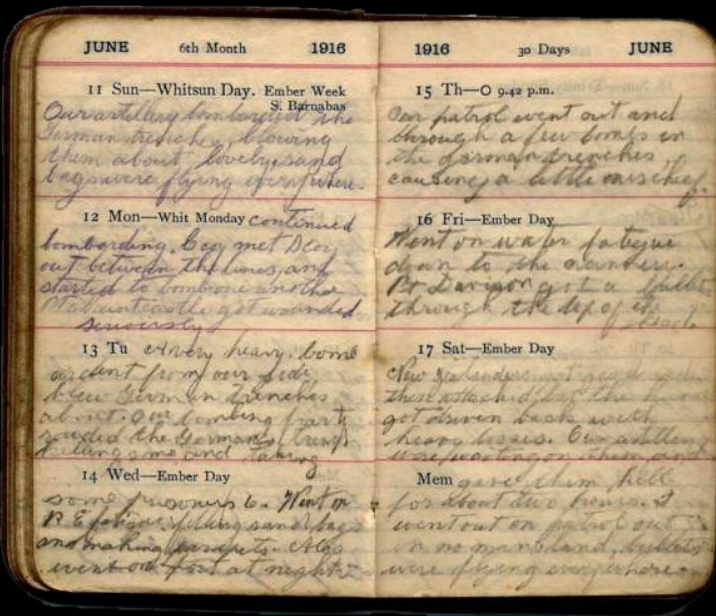 JUNE 6th Month 1916
11 Sun—Whitsun Day. Ember Week
S. Barnabas
Our artillery bombarded the
German trenches, blowing
them about lovely, sand
bags were flying everywhere.
12 Mon—Whit Monday continued
bombarding. Coy met Coy
out between the lines, and
started to bomb one another
got wounded
seriously
13 Tu A very heavy bomb
ardment from our side
blew German trenches
about. Our bombing party
raided the Germans trench
killing some and taking
14 Wed—Ember Day
some prisoners 6. Went on
R E fatigue filling sand bags
and making parapets. Also
went on post at night
1916 30 Days JUNE
15 Th—O 9.42 p.m.
Our patrol went out and
through a few bombs in
the German trenches,
causing a little mischief.
16 Fri—Ember Day
Went on water fatigue
down to the
Davison got a bullet
through the top of
17 Sat—Ember Day
New Zealanders got
then attacked but the
got driven back with
heavy losses. Our artillery
were waiting on them, and
Mem gave them hell
for about two hours. I
went out on patrol out
in no mans land, bullets
were flying everywhere.